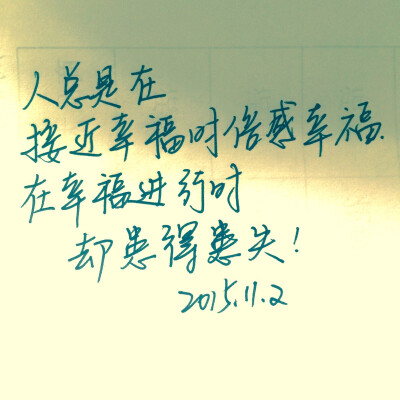 人总是在
接近幸福时倍感幸福.
在幸福进行时
却患得患失!
2015.11.2